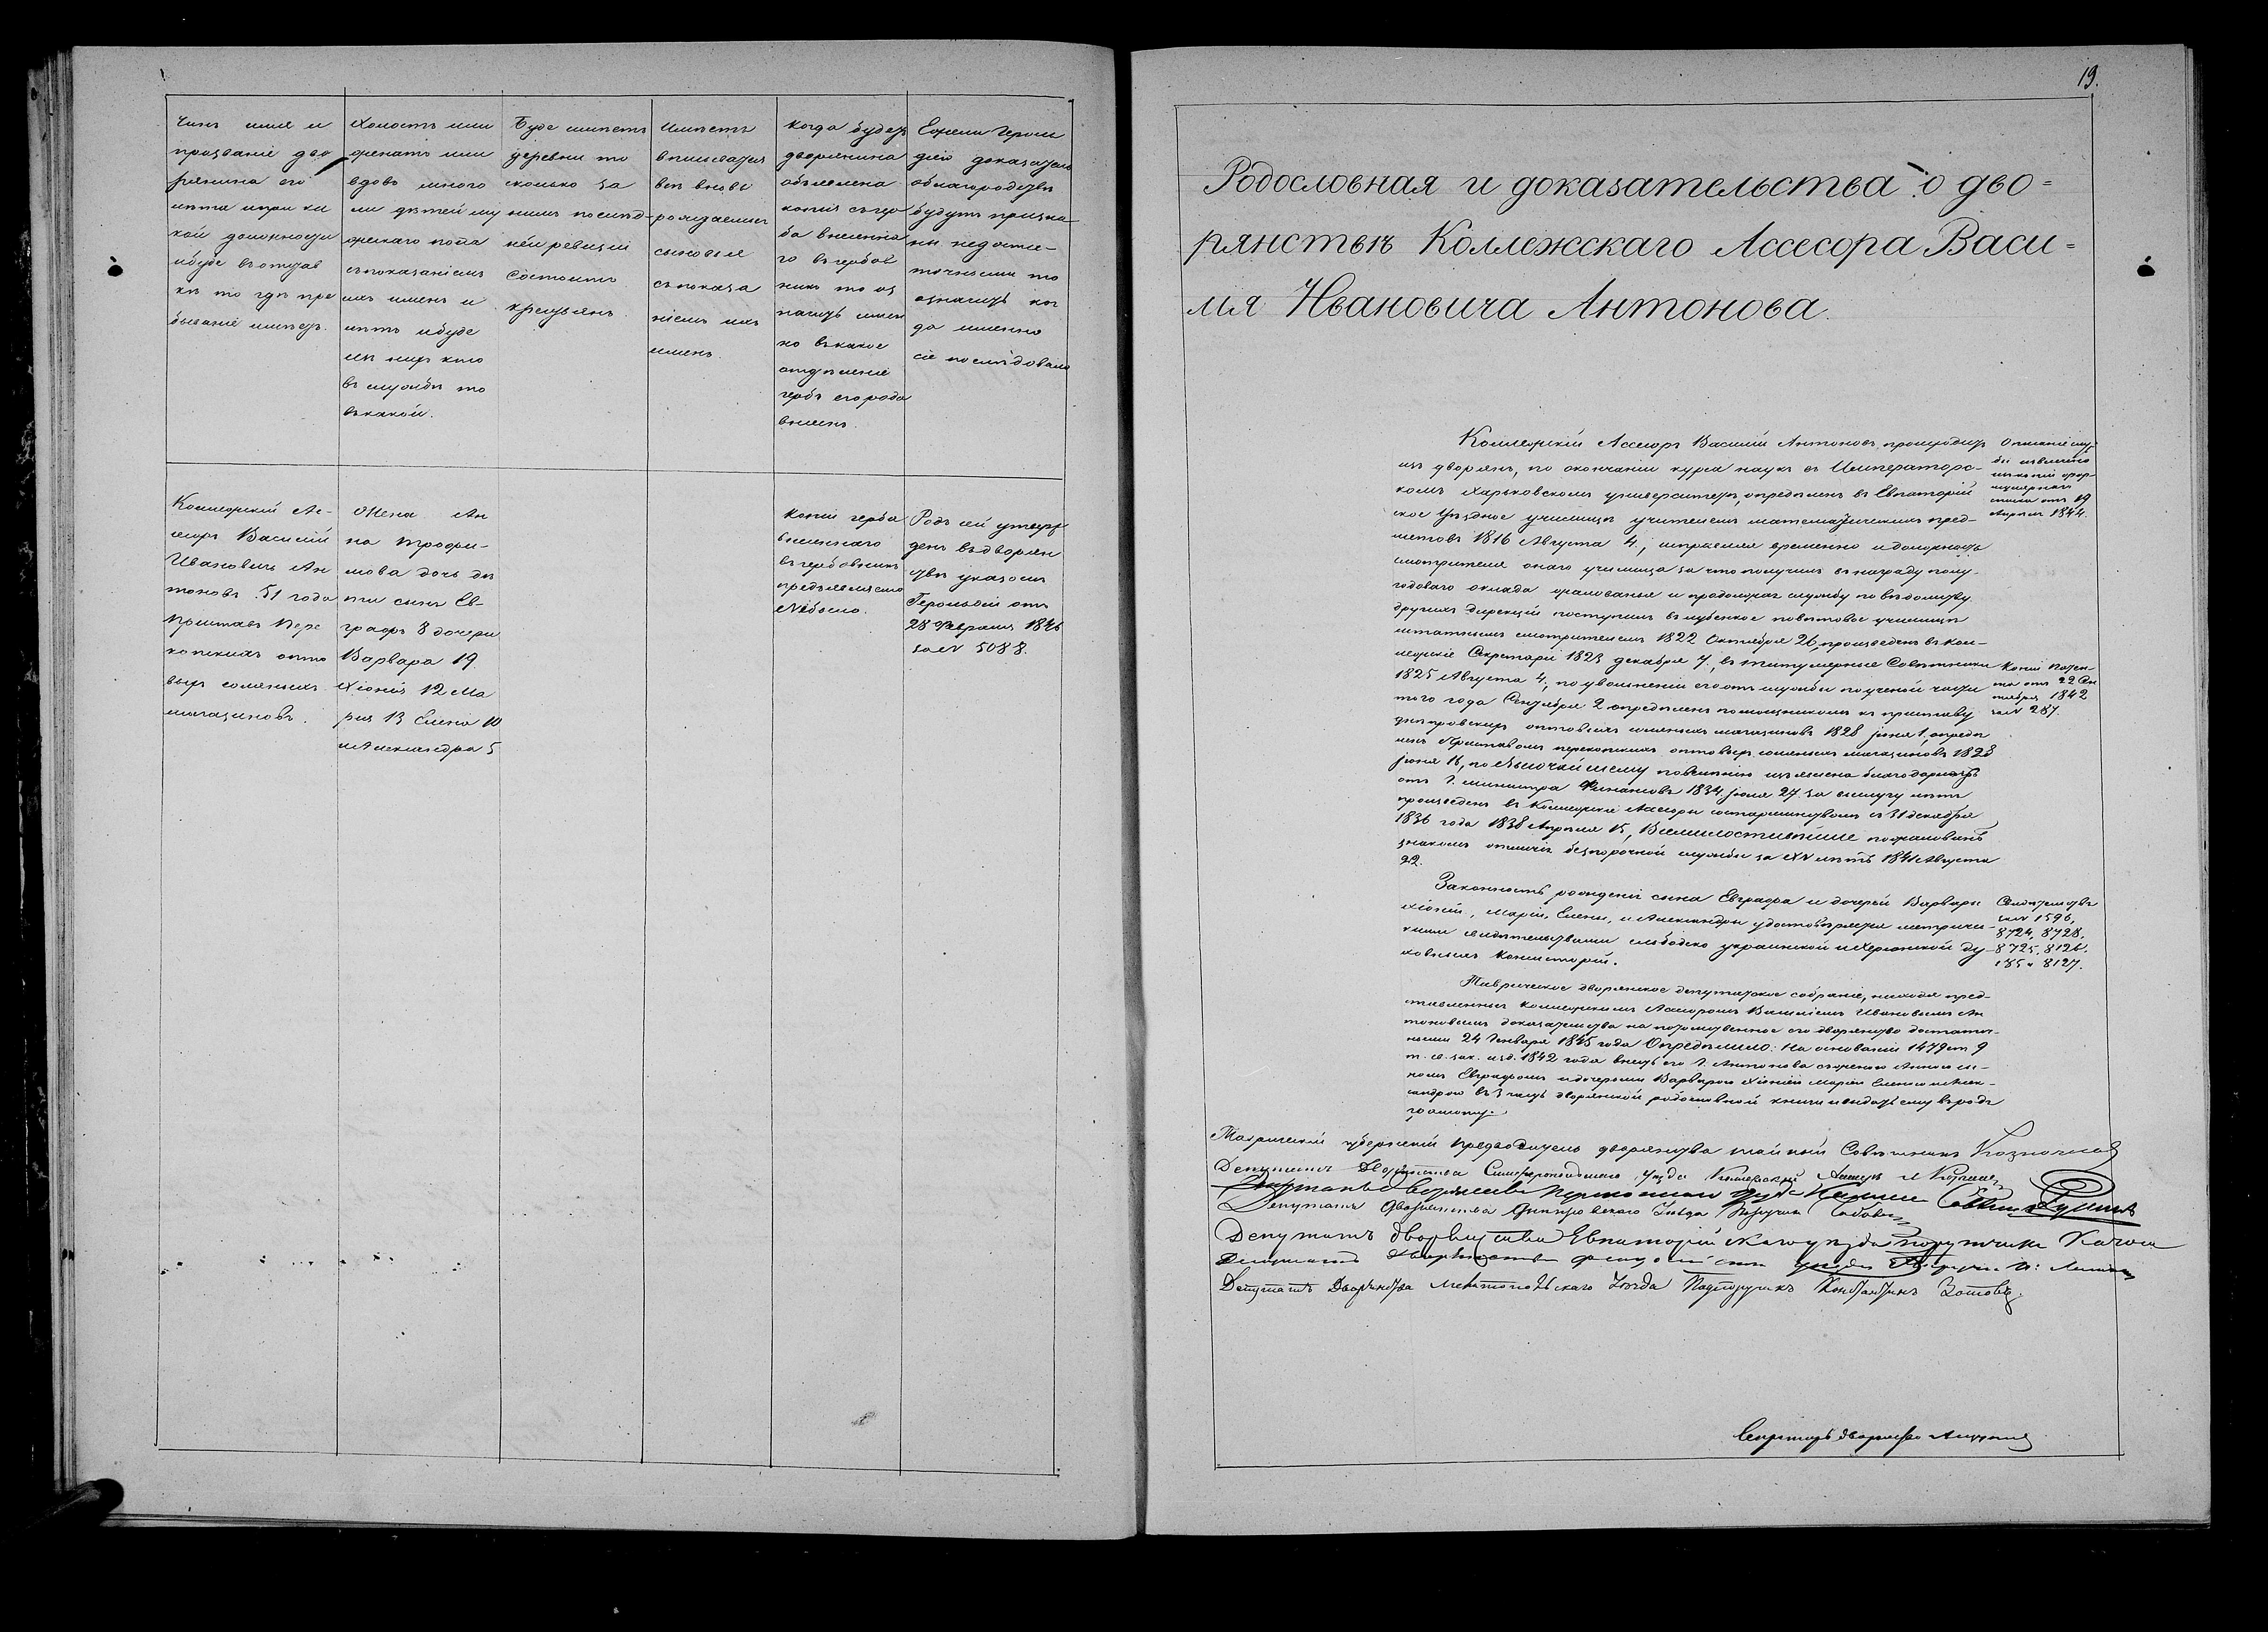 Чинъ имя и
прозваніе дво
рянина его
лѣта и при ка
кой должности
и буде въ отстав
кѣ то гдѣ пре
бываніе имѣетъ.
Холостъ или
женатъ или
вдовъ много
ли дѣтей му
жескаго пола
съ показаніемъ
ихъ именъ и
лѣтъ и буде
изъ нихъ кто
въ службѣ то
въ какой.
Буде имѣетъ
деревни то
сколько за
нимъ по слѣд-
ней ревизіи
состоитъ
крестьянъ
Имѣетъ
вписаться
всѣ вновь
рождаемые
сыновья
съ показа
ніемъ ихъ
именъ.
Когда будетъ
дворянина
объявлена
копія съ гер
ба внесенна
го въ гербов
никъ то оз
начить имен
но въ какое
отдѣленіе
гербъ его рода
внесенъ.
Ежели Герол
діею доказател
о благородствѣ
будутъ призна-
ны недоста-
точными то
означить ког
да именно
сіе послѣдовало
Коллежскій Ас-
сесоръ Василій
Ивановичъ Ан
тоновъ. 51 года
Приставъ Пере
копскихъ опто
выхъ соляныхъ
магазиновъ.
Жена Ан
на Трофи-
мова дочь дѣ
ти сынъ Ев-
графъ 8 дочери
Варвара 19.
Хіонія 12 Ма
рія 13 Елена 10
и Александра 5
Копіи герба
внесеннаго
въ гербовникъ
предъявляемо
не было.
Родъ сей утверж
денъ въ дворян
ствѣ указомъ
Герольдіи отъ
28 Февраля 1846
за № 5088.
19.
Родословная и доказательства о дво=
рянствѣ Коллежскаго Ассесора Васи=
лія Ивановича Антонова.
Коллежскій Ассесоръ Василій Антоновъ, происходитъ
изъ дворянъ, по окончаніи курса наукъ въ Императорс-
комъ Харьковскомъ университетѣ, опредѣленъ въ Евпаторій
ское уѣздное училище учителемъ математическихъ пред-
метовъ 1816 Августа 4., исправлялъ временно и должность
смотрителя онаго училища за что получилъ въ награду полу-
годоваго оклада жалованья и продолжая службу по вѣдомству
другихъ дирекцій поступилъ въ лубенское повѣтовое училище
штатнымъ смотрителемъ 1822 Октября 26, произведенъ въ кол-
лежскіе Секретари 1823 декабря 7, въ титулярные Совѣтники
1825 Августа 4., по увольненіи его отъ службы по ученой части
того года Сентября 2 опредѣленъ помощникомъ къ приставу
днѣпровскихъ оптовыхъ соляныхъ магазиновъ 1828 Іюня 1, опредѣ
ленъ Приставомъ перекопскихъ оптовыхъ соляныхъ магазиновъ 1828
Іюня 16, по Высочайшему повелѣнію изъявлена благодарность
отъ Г. министра Финансовъ 1834. Іюля 27. за выслугу лѣтъ
произведенъ въ Коллежскіе Ассесоры со старшинствомъ съ 31 декабря
1836 года 1838 Апрѣля 15, Всемилостивѣйше пожалованъ
знакомъ отличія безпорочной службы за XV лѣтъ 1841 Августа
22.
Описаніе служ
бы
отъ 19
Апрѣля 1844.
Копія патен-
та отъ 22 Сен
тября 1842
за № 287.
Законность рожденія сына Евграфа и дочерей Варвары
Хіоніи, Маріи, Елены, и Александры удостовѣряется метричес-
кими свидѣтельствами слободско украинской и херсонской ду-
ховныхъ Консисторій.
Свидѣтельствъ
за № 1596,
8724, 8728,
8725, 8126,
185 и 8127.
Таврическое дворянское депутатское собраніе, находя пред-
ставленныя коллежскимъ Ассесоромъ Василіемъ Ивановымъ Ан
тоновымъ доказательства на потомственное его дворянство достаточ-
ными 24 Генваря 1845 года Опредѣлило: На основаніи 1479 ст. 9
т. св. зак. изд. 1842 года внесть его Г. Антонова съ женою Анною сы-
номъ Евграфомъ и дочерьми Варварою Хіоніею Маріею Еленою и Алек-
сандрою въ 3 часть дворянской родословной книги и выдать ему въ родъ
грамоту.
Таврическій губернскій предводитель дворянства тайный Совѣтникъ Казначеев
Депутатъ Дворянства Симферопольскаго Уѣзда Коллежскій Ассесоръ
Депутатъ Дворянства Перекопскаго Уѣзда
Депутатъ Дворянства Днѣпровскаго Уѣзда Поручикъ
Депутатъ дворянства Евпаторійскаго уѣзда поручикъ
Депутатъ Дворянства Феодосійскаго уѣзда
Депутатъ Дворянства Мелитопольскаго Уѣзда Подпоручикъ Константинъ Зотовъ.
Секретарь дворянства